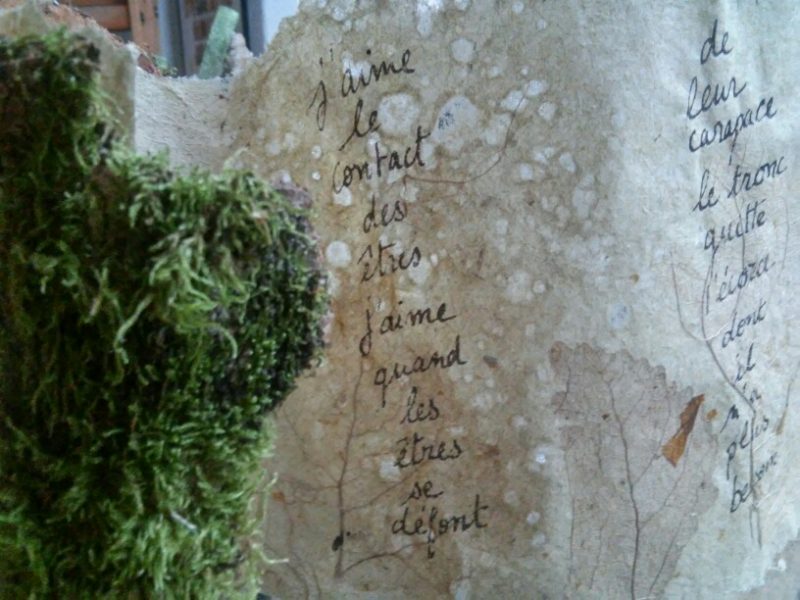 j'aime
le
contact
des
êtres
j'aime
quand
les
êtres
se
défont
de
leur
carapace
le tronc
quitte
dont
il
n'a
plus